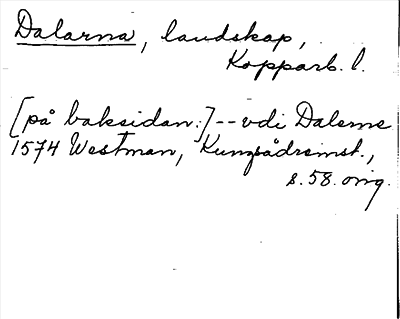 Dalarna, landskap,
Kopparb. l.
[på baksidan:] -- vdi Dalerne
1574 Westman, Kungsådreinst.,
s. 58. orig.